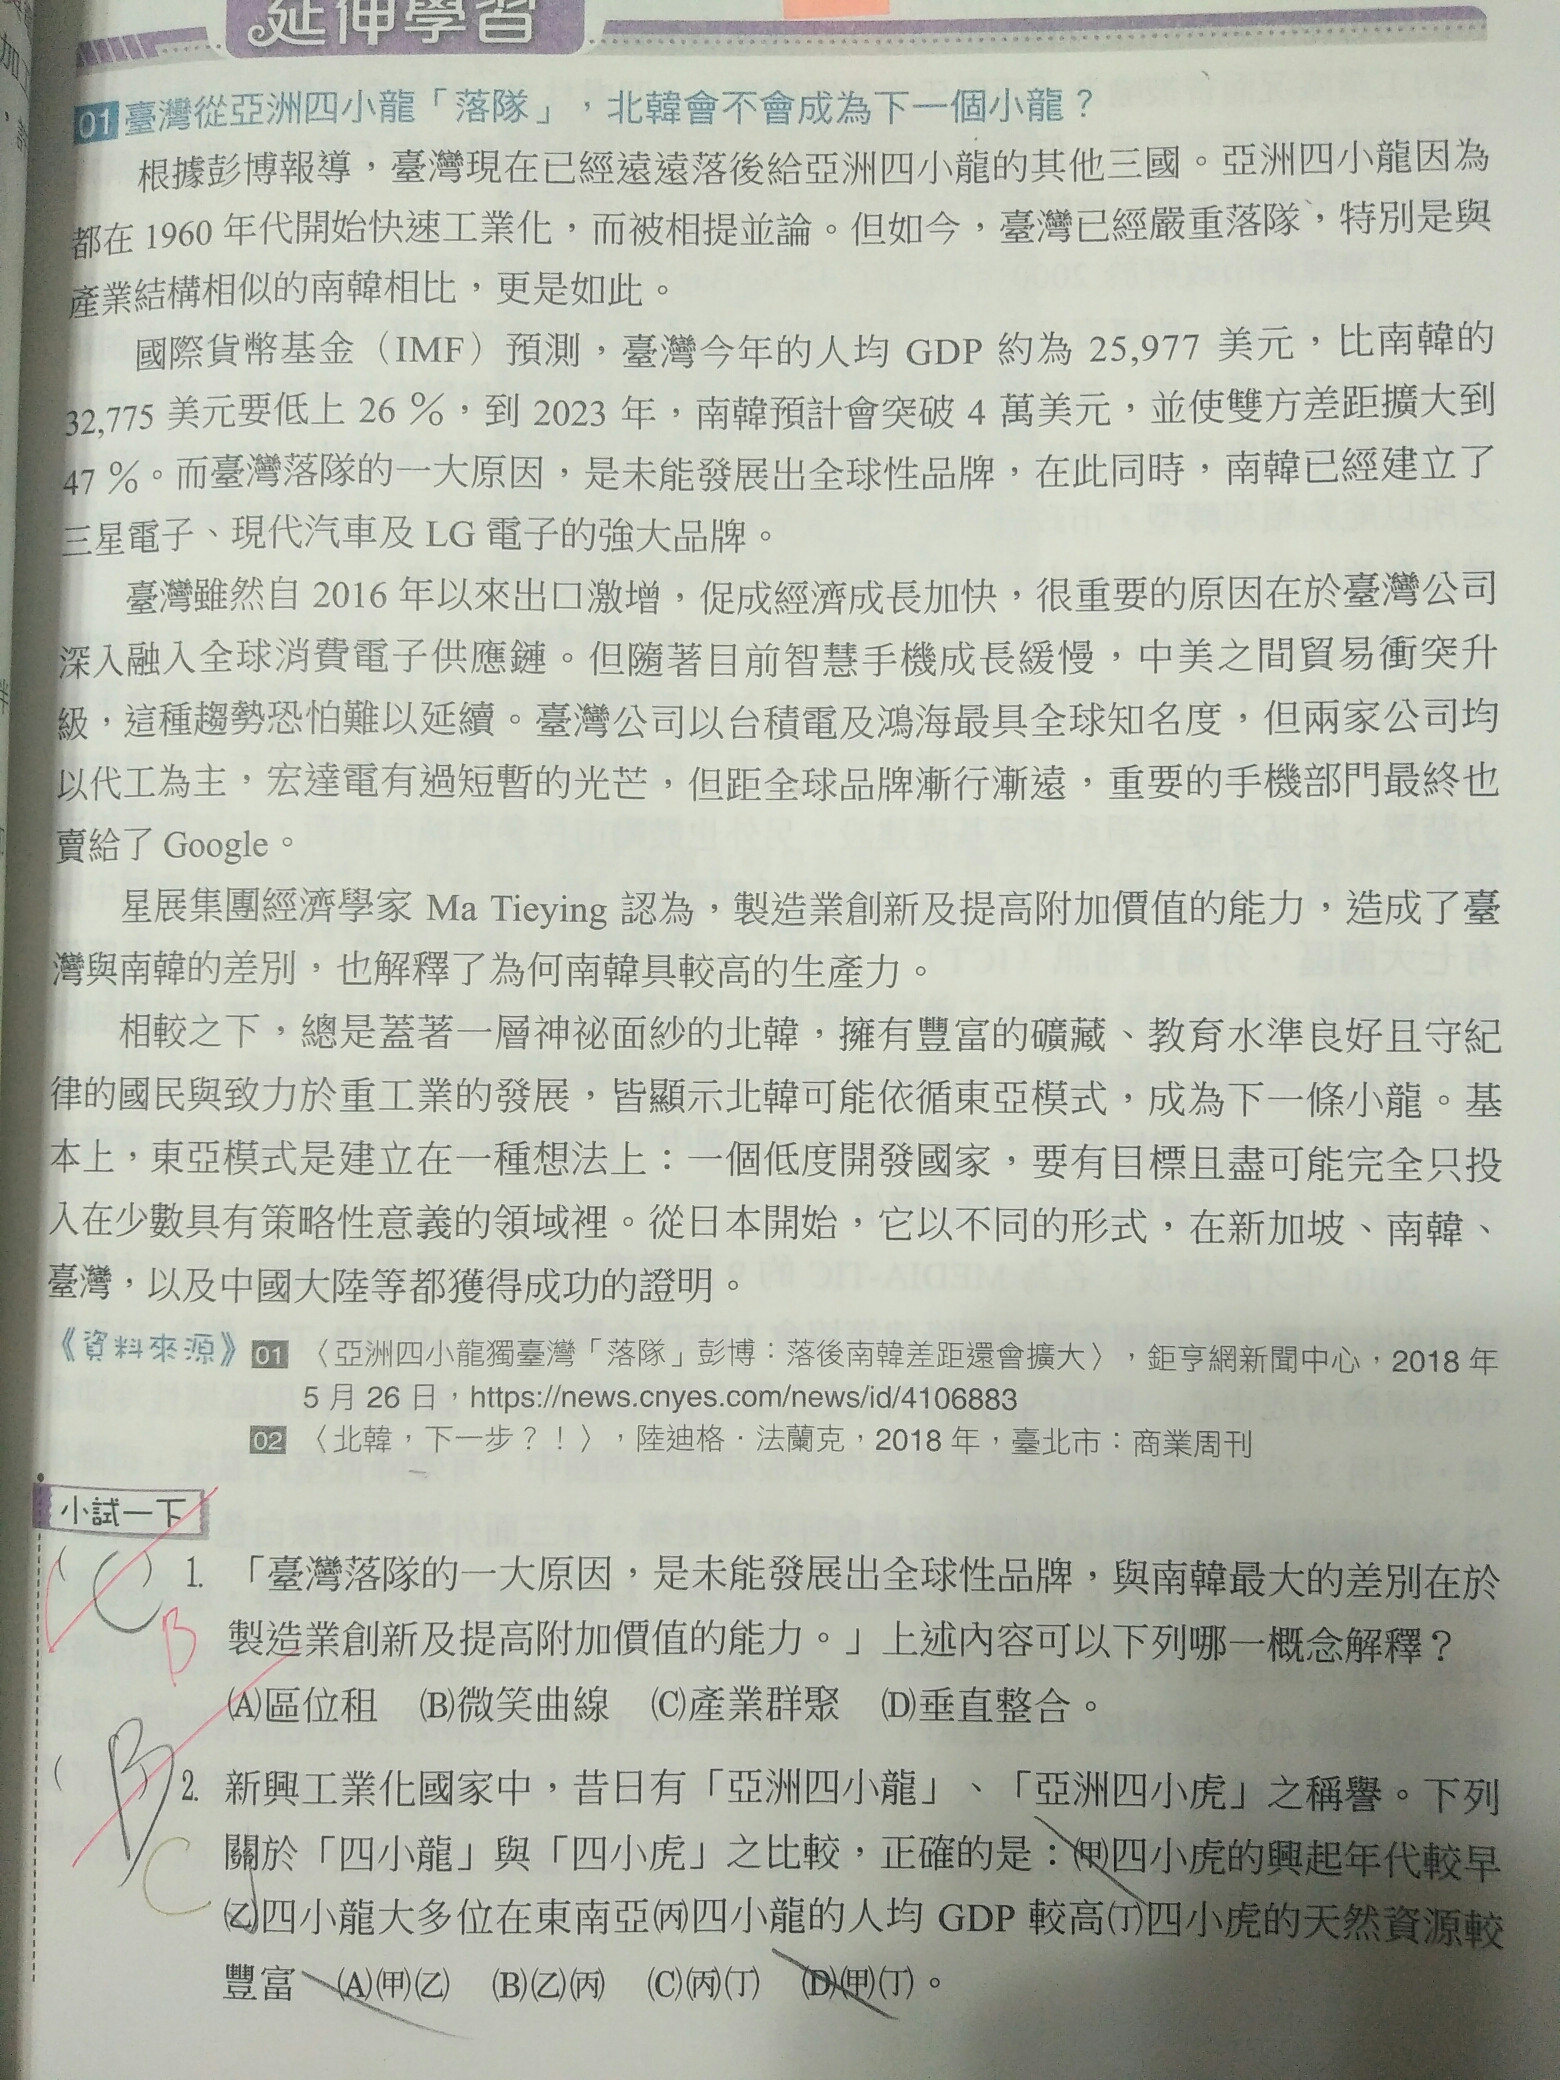 延伸學習
01 臺灣從亞洲四小龍「落隊」，北韓會不會成為下一個小龍？
根據彭博報導，臺灣現在已經遠遠落後給亞洲四小龍的其他三國。亞洲四小龍因為
都在 1960 年代開始快速工業化，而被相提並論。但如今，臺灣已經嚴重落隊，特別是與
產業結構相似的南韓相比，更是如此。
國際貨幣基金（IMF）預測，臺灣今年的人均 GDP 約為 25,977 美元，比南韓的
32,775 美元要低上 26 %，到 2023 年，南韓預計會突破 4 萬美元，並使雙方差距擴大到
47 %。而臺灣落隊的一大原因，是未能發展出全球性品牌，在此同時，南韓已經建立了
三星電子、現代汽車及 LG 電子的強大品牌。
臺灣雖然自 2016 年以來出口激增，促成經濟成長加快，很重要的原因在於臺灣公司
深入融入全球消費電子供應鏈。但隨著目前智慧手機成長緩慢，中美之間貿易衝突升
級，這種趨勢恐怕難以延續。臺灣公司以台積電及鴻海最具全球知名度，但兩家公司均
以代工為主，宏達電有過短暫的光芒，但距全球品牌漸行漸遠，重要的手機部門最終也
賣給了 Google。
星展集團經濟學家 Ma Tieying 認為，製造業創新及提高附加價值的能力，造成了臺
灣與南韓的差別，也解釋了為何南韓具較高的生產力。
相較之下，總是蓋著一層神祕面紗的北韓，擁有豐富的礦藏、教育水準良好且守紀
律的國民與致力於重工業的發展，皆顯示北韓可能依循東亞模式，成為下一條小龍。基
本上，東亞模式是建立在一種想法上：一個低度開發國家，要有目標且盡可能完全只投
入在少數具有策略性意義的領域裡。從日本開始，它以不同的形式，在新加坡、南韓、
臺灣，以及中國大陸等都獲得成功的證明。
《資料來源》 01 〈亞洲四小龍獨臺灣「落隊」彭博：落後南韓差距還會擴大〉，鉅亨網新聞中心，2018 年
5 月 26 日，https://news.cnyes.com/news/id/4106883
02 〈北韓，下一步？！〉，陸迪格．法蘭克，2018 年，臺北市：商業周刊
小試一下
( C ) 1. 「臺灣落隊的一大原因，是未能發展出全球性品牌，與南韓最大的差別在於
B 製造業創新及提高附加價值的能力。」上述內容可以下列哪一概念解釋？
(A)區位租 (B)微笑曲線 (C)產業群聚 (D)垂直整合。
( B ) 2. 新興工業化國家中，昔日有「亞洲四小龍」、「亞洲四小虎」之稱譽。下列
C 關於「四小龍」與「四小虎」之比較，正確的是：(甲)四小虎的興起年代較早
(乙)四小龍大多位在東南亞(丙)四小龍的人均 GDP 較高(丁)四小虎的天然資源較
豐富 (A)(甲)(乙) (B)(乙)(丙) (C)(丙)(丁) (D)(甲)(丁)。